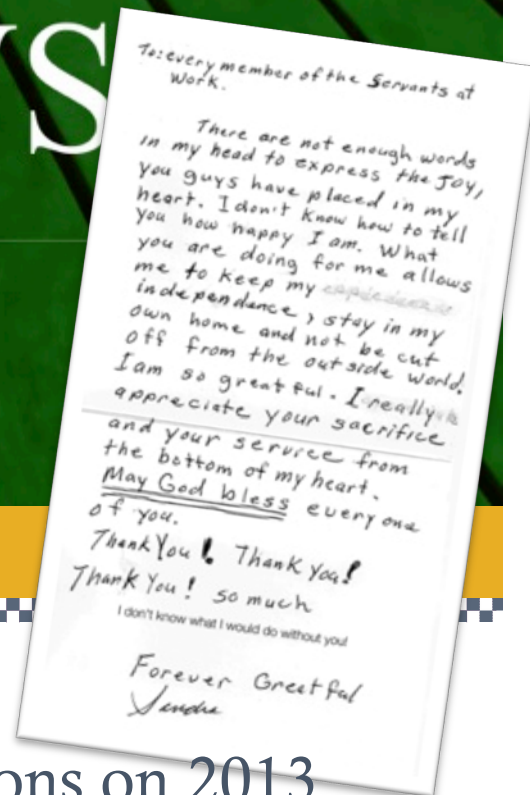 S
To: every member of the Servants at
Work.
There are not enough words
in my head to express the Joy,
you guys have placed in my
heart. I don't know how to tell
you how happy I am. What
you are doing for me allows
me to keep my
independence, stay in my
own home and not be cut
off from the outside world.
I am so great ful. I really
appreciate your sacrifice
and your service from
the bottom of my heart.
May God bless everyone
of you.
Thank You! Thank You!
Thank You! so much
I don't know what I would do without you!
Forever Greatful
ons on 2013